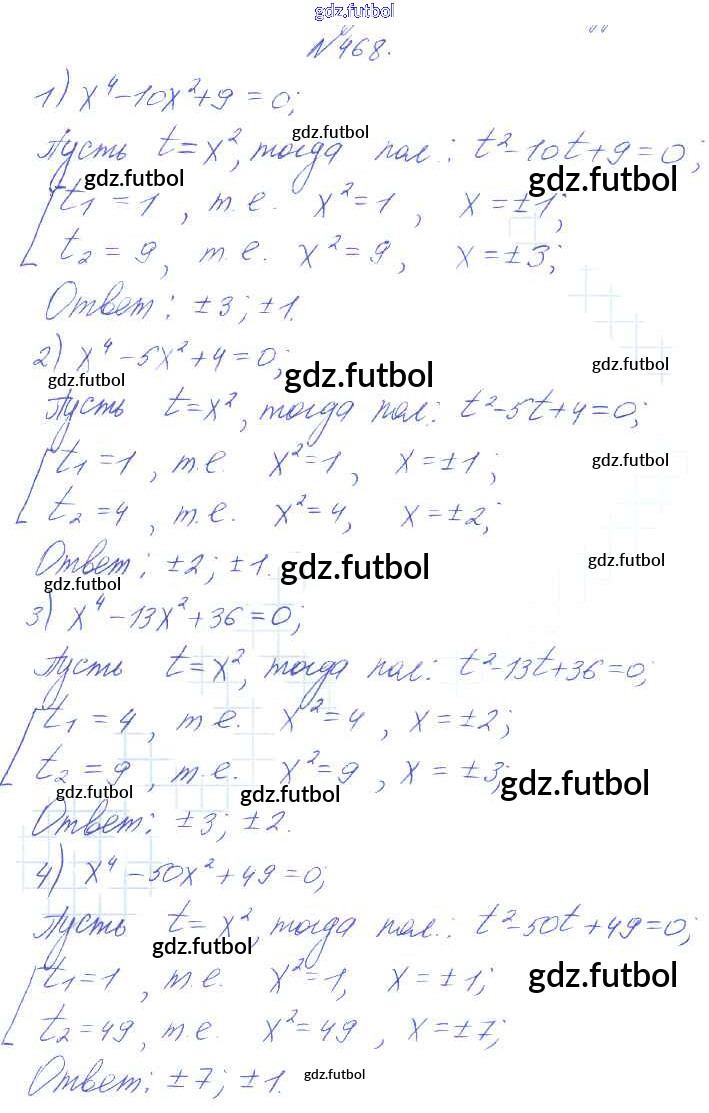 gdz.futbol
№468.
1) x⁴-10x²+9=0;
gdz.futbol
Пусть t=x², тогда пол.: t²-10t+9=0;
gdz.futbol gdz.futbol
t₁=1, т.е. x²=1, x=±1;
t₂=9, т.е. x²=9, x=±3;
Ответ: ±3; ±1.
2) x⁴-5x²+4=0;
gdz.futbol gdz.futbol gdz.futbol
Пусть t=x², тогда пол: t²-5t+4=0;
t₁=1, т.е. x²=1, x=±1; gdz.futbol
t₂=4, т.е. x²=4, x=±2;
Ответ: ±2; ±1. gdz.futbol gdz.futbol
gdz.futbol
3) x⁴-13x²+36=0;
Пусть t=x², тогда пол: t²-13t+36=0;
t₁=4, т.е. x²=4, x=±2;
t₂=9, т.е. x²=9, x=±3;
gdz.futbol gdz.futbol gdz.futbol
Ответ: ±3; ±2.
4) x⁴-50x²+49=0;
Пусть t=x², тогда пол.: t²-50t+49=0;
gdz.futbol
t₁=1, т.е. x²=1, x=±1; gdz.futbol
t₂=49, т.е. x²=49, x=±7;
Ответ: ±7; ±1. gdz.futbol